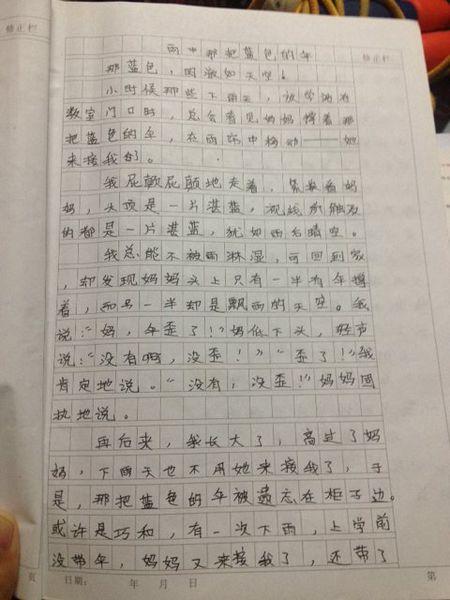 修正栏
修正栏
雨中那把蓝色的伞
那蓝色,固澈如天空!
小时候那些下雨天,放学站在
教室门口时,总会看见妈妈撑着那
把蓝色的伞,在雨帘中移动——她
来接我的。
我屁颠屁颠地走着,紧挨着妈
妈,头顶是一片湛蓝,视线所触及
的都是一片湛蓝,犹如雨后晴空。
我总能不被雨淋湿,可回到家
,却发现妈妈头上只有一半有伞撑
着,而另一半却是飘雨的天空。我
说:“妈,伞歪了!”妈低下头,轻声
说:“没有啊,没歪!”“歪了!”我
肯定地说。“没有,没歪!”妈妈固
执地说。
再后来,我长大了,高过了妈
妈,下雨天也不用她来接我了,于
是,那把蓝色的伞被遗忘在柜子边。
或许是巧和,有一次下雨,上学前
没带伞,妈妈又来接我了,还带了
页 日期: 年 月 日 第